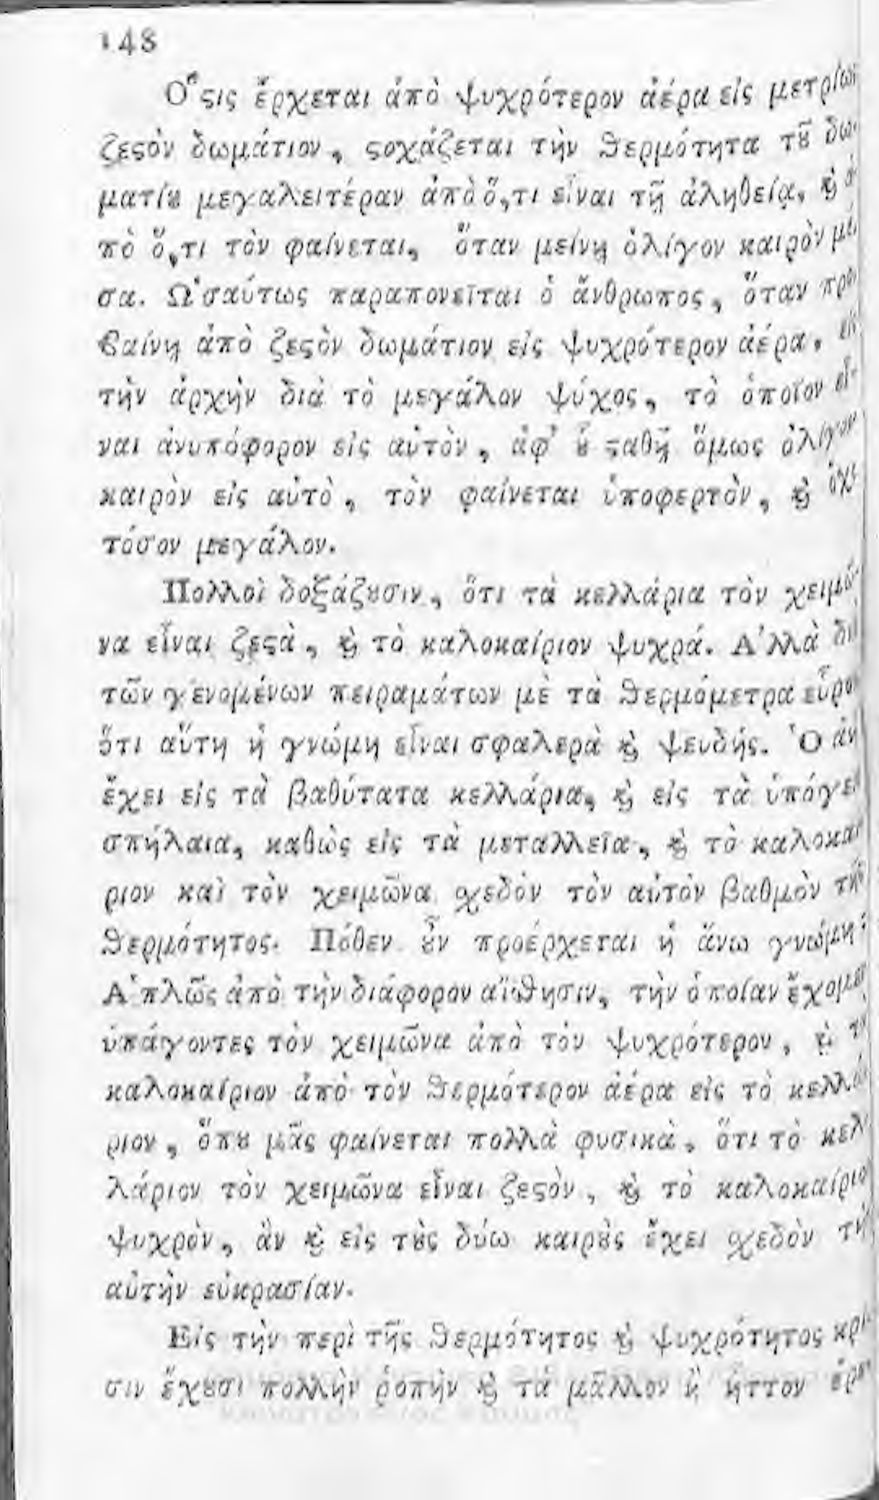 148
Ὅςις ἔρχεται ἀπὸ ψυχρότερον ἀέρα εἰς μετρίως
ζεςὸν δωμάτιον, ςοχάζεται τὴν θερμότητα τȣ͂ δω-
ματίȣ μεγαλειτέραν ἀπὸ ὅ,τι εἶναι τῇ ἀληθείᾳ, ϗ̀ ἀ-
πὸ ὅ,τι τὸν φαίνεται, ὅταν μείνῃ ὀλίγον καιρὸν μέ-
σα. Ὡσαύτως παραπονεῖται ὁ ἄνθρωπος, ὅταν προ-
βαίνῃ ἀπὸ ζεςὸν δωμάτιον εἰς ψυχρότερον ἀέρα, εἰς
τὴν ἀρχὴν διὰ τὸ μεγάλον ψύχος, τὸ ὁποῖον εἶ-
ναι ἀνυπόφορον εἰς αὐτὸν, ἀφ' ȣ̓͂ ςαθῇ ὅμως ὀλίγον
καιρὸν εἰς αὐτὸ, τὸν φαίνεται ὑποφερτὸν, ϗ̀ ὄχι
τόσον μεγάλον.
Πολλοὶ δοξάζȣσιν, ὅτι τὰ κελλάρια τὸν χειμῶ-
να εἶναι ζεςὰ, ϗ̀ τὸ καλοκαίριον ψυχρά. Ἀλλὰ διὰ
τῶν γενομένων πειραμάτων μὲ τὰ θερμόμετρα εὗρον
ὅτι αὕτη ἡ γνώμη εἶναι σφαλερὰ ϗ̀ ψευδής. Ὁ ἀὴρ
ἔχει εἰς τὰ βαθύτατα κελλάρια, ϗ̀ εἰς τὰ ὑπόγεια
σπήλαια, καθὼς εἰς τὰ μεταλλεῖα, ϗ̀ τὸ καλοκαί-
ριον καὶ τὸν χειμῶνα σχεδὸν τὸν αὐτὸν βαθμὸν τῆς
θερμότητος. Πόθεν ȣ̓͂ν προέρχεται ἡ ἄνω γνώμη;
Ἁπλῶς ἀπὸ τὴν διάφορον αἴσθησιν, τὴν ὁποίαν ἔχομεν
ὑπάγοντες τὸν χειμῶνα ἀπὸ τὸν ψυχρότερον, ϗ̀ τὸ
καλοκαίριον ἀπὸ τὸν θερμότερον ἀέρα εἰς τὸ κελλά-
ριον, ὅπȣ μᾶς φαίνεται πολλὰ φυσικὰ, ὅτι τὸ κελ-
λάριον τὸν χειμῶνα εἶναι ζεςὸν, ϗ̀ τὸ καλοκαίριον
ψυχρὸν, ἂν ϗ̀ εἰς τȣ̀ς δύω καιρȣ̀ς ἔχει σχεδὸν τὴν
αὐτὴν εὐκρασίαν.
Εἰς τὴν περὶ τῆς θερμότητος ϗ̀ ψυχρότητος κρί-
σιν ἔχȣσι πολλὴν ῥοπὴν ϗ̀ τὰ μᾶλλον ἢ ἧττον